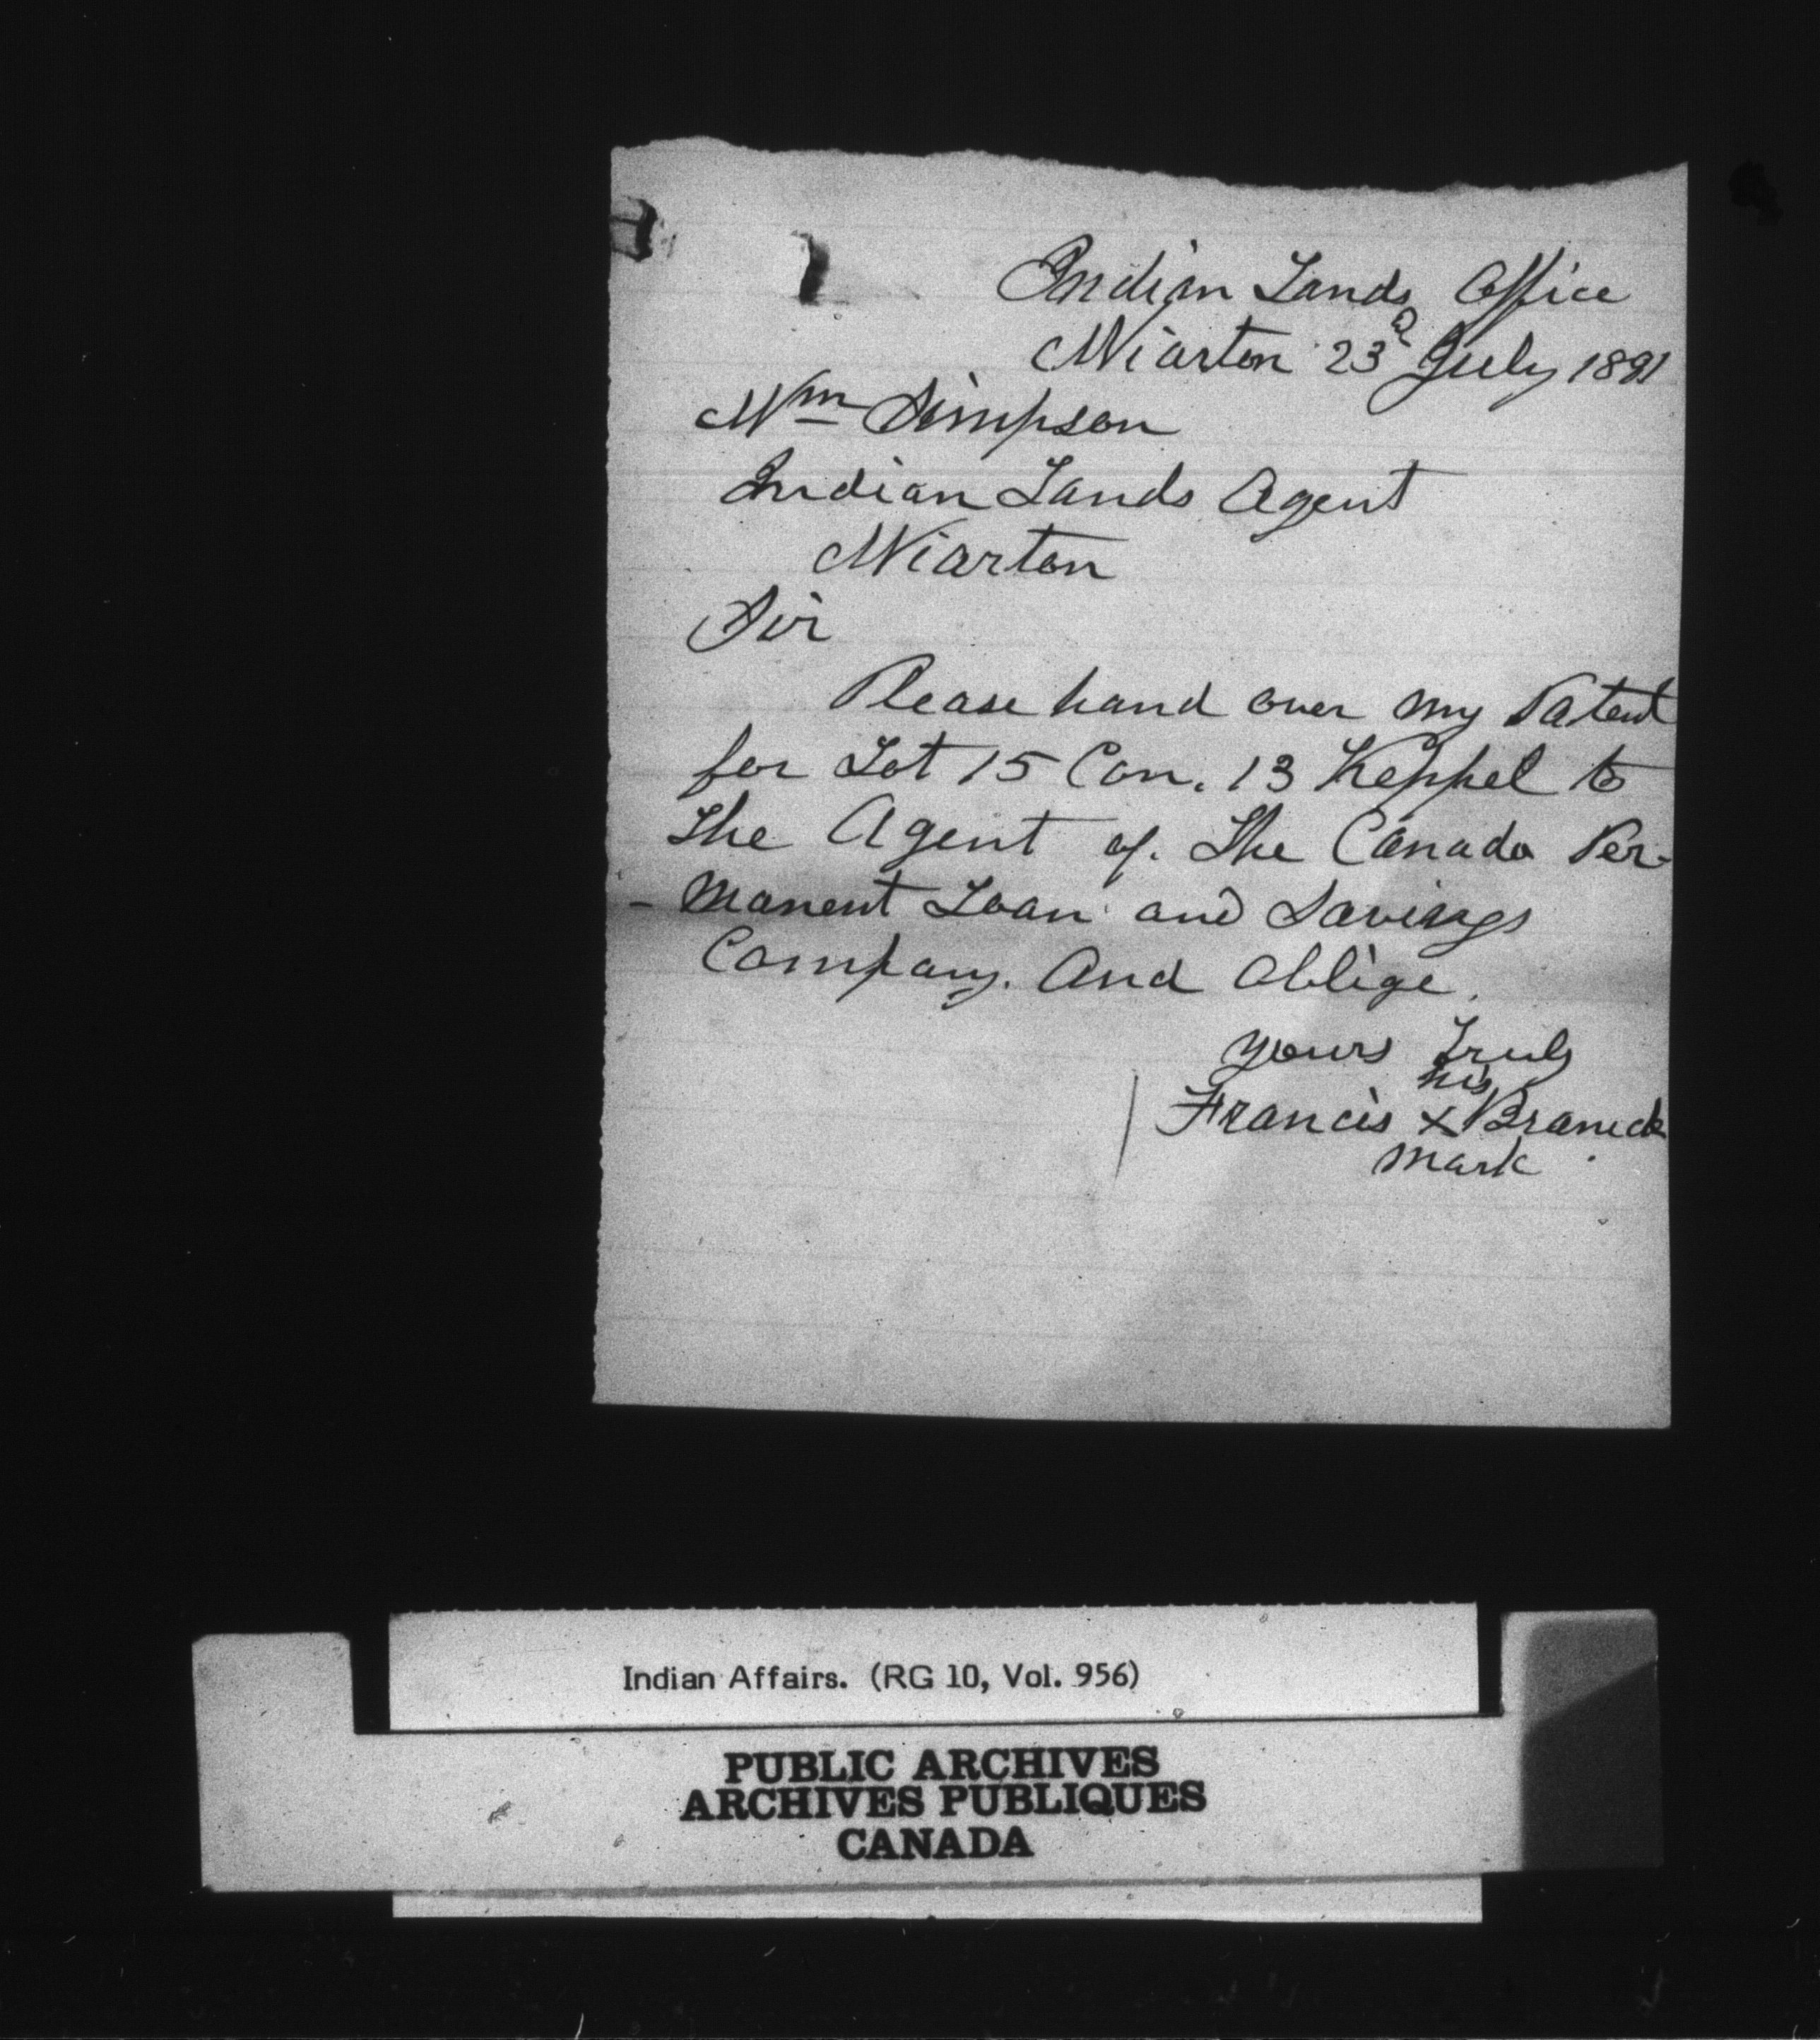 Indian Lands Office
Wiarton 23d July 1891
Wm Simpson
Indian Lands Agent
Wiarton
Sir
Please hand over my Patent
for Lot 15 Con. 13 Keppel to
the Agent of. The Canada Per-
- manent Loan and Savings
Company. And Oblige.
Yours Truly
his
Francis x Branick
mark
Indian Affairs. (RG 10, Vol. 956)
PUBLIC ARCHIVES
ARCHIVES PUBLIQUES
CANADA